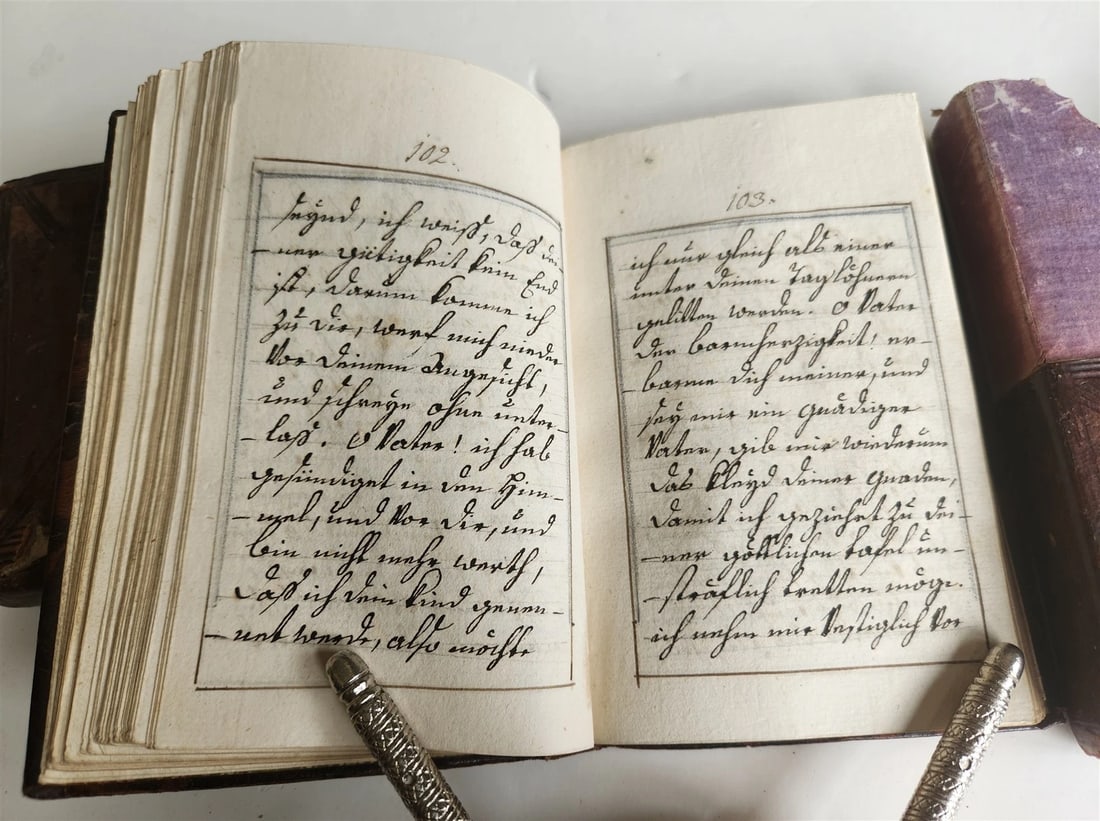 102.
seynd, ich weiss, dass dei-
ner gütigkeit kein End
ist, darum komme ich
zu dir, werf mich nieder
vor deinem Angesicht,
und schreye ohne unter-
lass. O Vater! ich hab
gesündiget in den Him-
mel, und vor dir, und
bin nicht mehr werth,
dass ich dein kind genen-
net werde, also möchte
103.
ich nur gleich als einer
unter deinen Taglöhnern
gelitten werden. O Vater
der barmherzigkeit! er-
barme dich meiner, und
sey mir ein gnädiger
Vater, gib mir wiederum
das kleyd deiner gnaden,
damit ich geziehrt zu dei-
ner göttlichen tafel un-
sträflich tretten möge.
ich nehm mir vestiglich vor